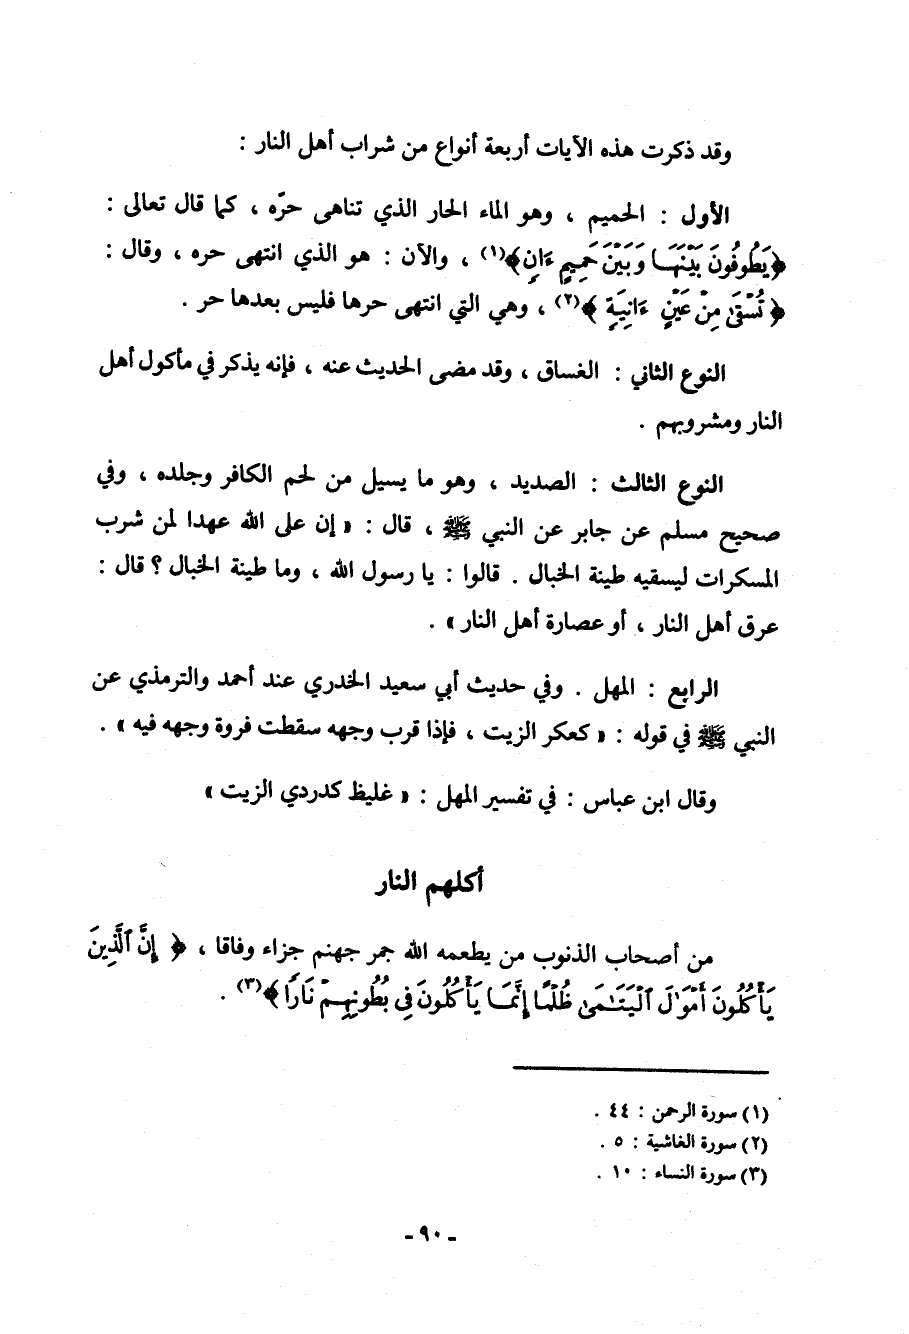 وقد ذكرت هذه الآيات أربعة أنواع من شراب أهل النار :
الأول : الحميم ، وهو الماء الحار الذي تناهى حرّه ، كما قال تعالى :
﴿يَطُوفُونَ بَيْنَهَا وَبَيْنَ حَمِيمٍ ءَانٍ﴾(١) ، والآن : هو الذي انتهى حره ، وقال :
﴿ تُسْقَىٰ مِنْ عَيْنٍ ءَانِيَةٍ ﴾(٢) ، وهي التي انتهى حرها فليس بعدها حر .
النوع الثاني : الغساق ، وقد مضى الحديث عنه ، فإنه يذكر في مأكول أهل
النار ومشروبهم .
النوع الثالث : الصديد ، وهو ما يسيل من لحم الكافر وجلده ، وفي
صحيح مسلم عن جابر عن النبي ﷺ ، قال : « إن على الله عهدا لمن شرب
المسكرات ليسقيه طينة الخبال . قالوا : يا رسول الله ، وما طينة الخبال ؟ قال :
عرق أهل النار ، أو عصارة أهل النار » .
الرابع : المهل . وفي حديث أبي سعيد الخدري عند أحمد والترمذي عن
النبي ﷺ في قوله : « كعكر الزيت ، فإذا قرب وجهه سقطت فروة وجهه فيه » .
وقال ابن عباس : في تفسير المهل : « غليظ كدردي الزيت »
أكلهم النار
من أصحاب الذنوب من يطعمه الله جمر جهنم جزاء وفاقا ، ﴿ إِنَّ ٱلَّذِينَ
يَأْكُلُونَ أَمْوَٰلَ ٱلْيَتَـٰمَىٰ ظُلْمًا إِنَّمَا يَأْكُلُونَ فِى بُطُونِهِمْ نَارًا ﴾(٣) .
(١) سورة الرحمن : ٤٤ .
(٢) سورة الغاشية : ٥ .
(٣) سورة النساء : ١٠ .
- ٩٠ -